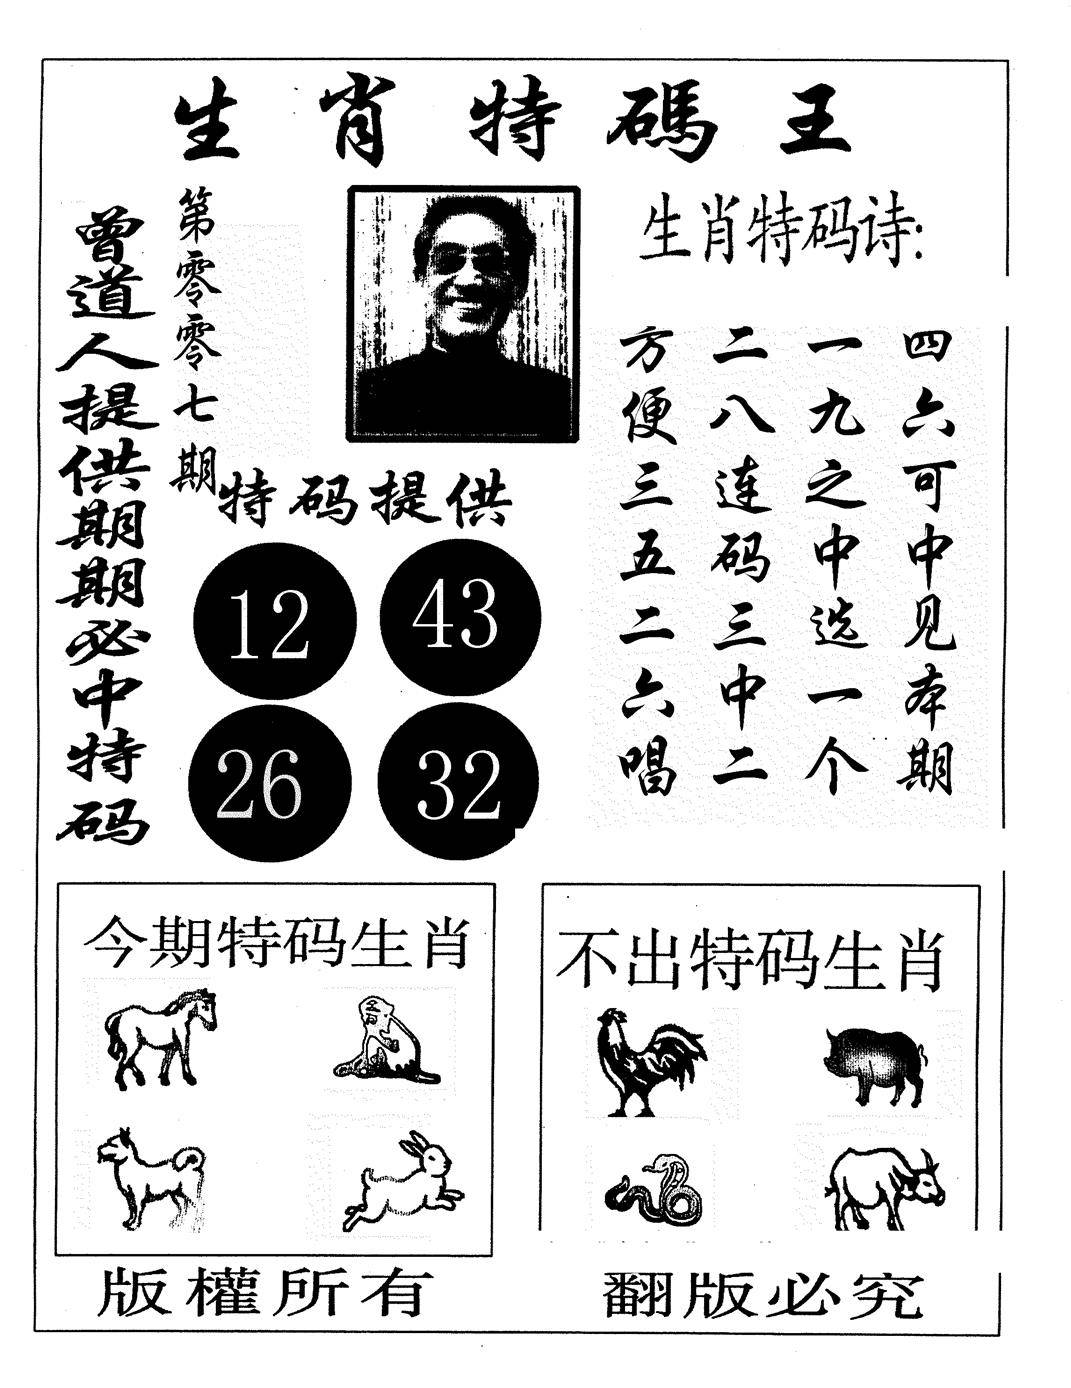 生肖特碼王
曾道人提供期期必中特码
第零零七期
生肖特码诗:
方便三五二六唱
二八连码三中二
一九之中选一个
四六可中见本期
特码提供
12
43
26
32
今期特码生肖
不出特码生肖
版權所有
翻版必究